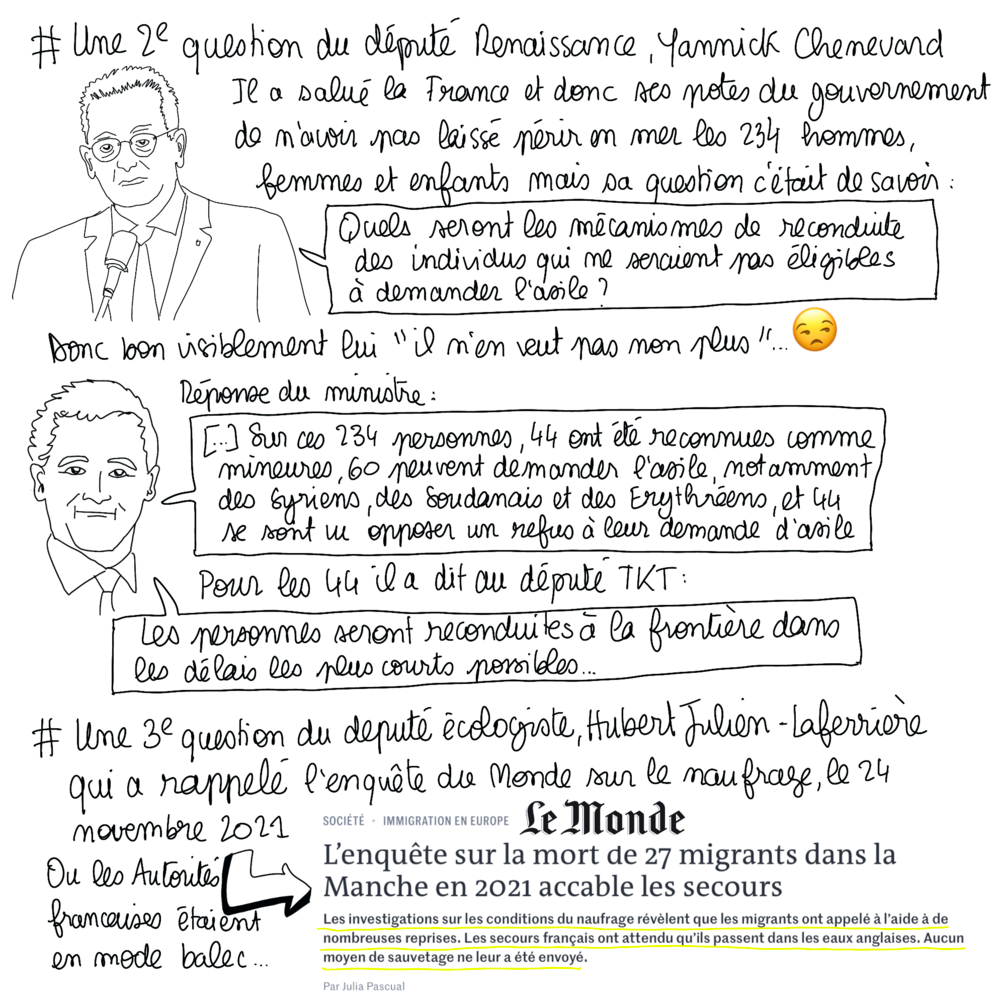 # Une 2e question du député Renaissance, Yannick Chenevard
Il a salué la France et donc ses potes du gouvernement
de n'avoir pas laissé périr en mer les 234 hommes,
femmes et enfants mais sa question c'était de savoir :
Quels seront les mécanismes de reconduite
des individus qui ne seraient pas éligibles
à demander l'asile ?
Donc bon visiblement lui "il n'en veut pas non plus"...
Réponse du ministre :
[...] Sur ces 234 personnes, 44 ont été reconnues comme
mineures, 60 peuvent demander l'asile, notamment
des Syriens, des Soudanais et des Erythréens, et 44
se sont vu opposer un refus à leur demande d'asile
Pour les 44 il a dit au député TKT :
Les personnes seront reconduites à la frontière dans
les délais les plus courts possibles...
# Une 3e question du deputé écologiste, Hubert Julien-Laferrière
qui a rappelé l'enquête du Monde sur le naufrage, le 24
novembre 2021
SOCIÉTÉ · IMMIGRATION EN EUROPE Le Monde
Ou les Autorités
francaises étaient
en mode balec...
L'enquête sur la mort de 27 migrants dans la
Manche en 2021 accable les secours
Les investigations sur les conditions du naufrage révèlent que les migrants ont appelé à l'aide à de
nombreuses reprises. Les secours français ont attendu qu'ils passent dans les eaux anglaises. Aucun
moyen de sauvetage ne leur a été envoyé.
Par Julia Pascual